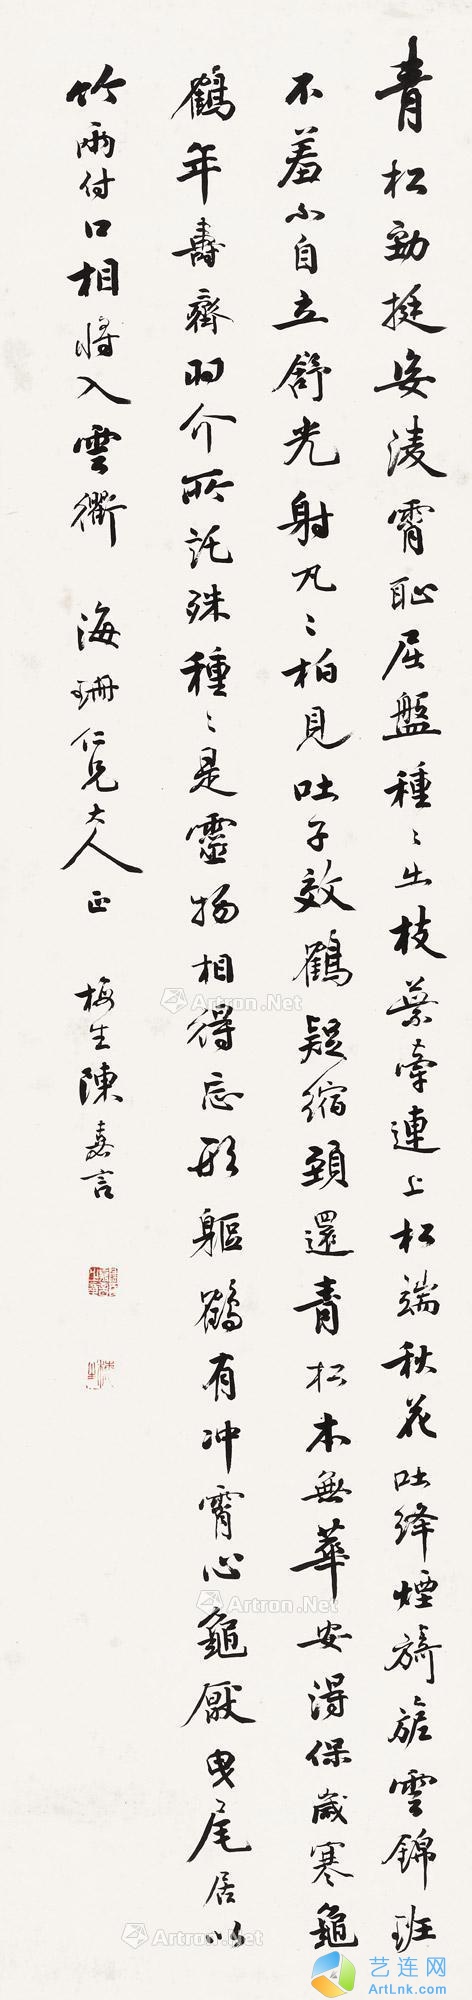 青松勁挺姿淩霄恥屈盤種〻出枝葉牽連上松端秋花吐絳煙旖旎雲錦班
不羞不自立舒光射丸〻柏見吐子效鶴疑縮頸還青松本無華安得保歲寒龜
鶴年壽齊羽介所託殊種〻是靈物相得忘形軀鶴有冲霄心龜厭曳尾居以
竹兩付口相將入雲衢 海珊仁兄大人正 梅生陳嘉言
Artron.Net
Artron.Net
Artron.Net
Artron.Net
艺连网
ArtLnk.com